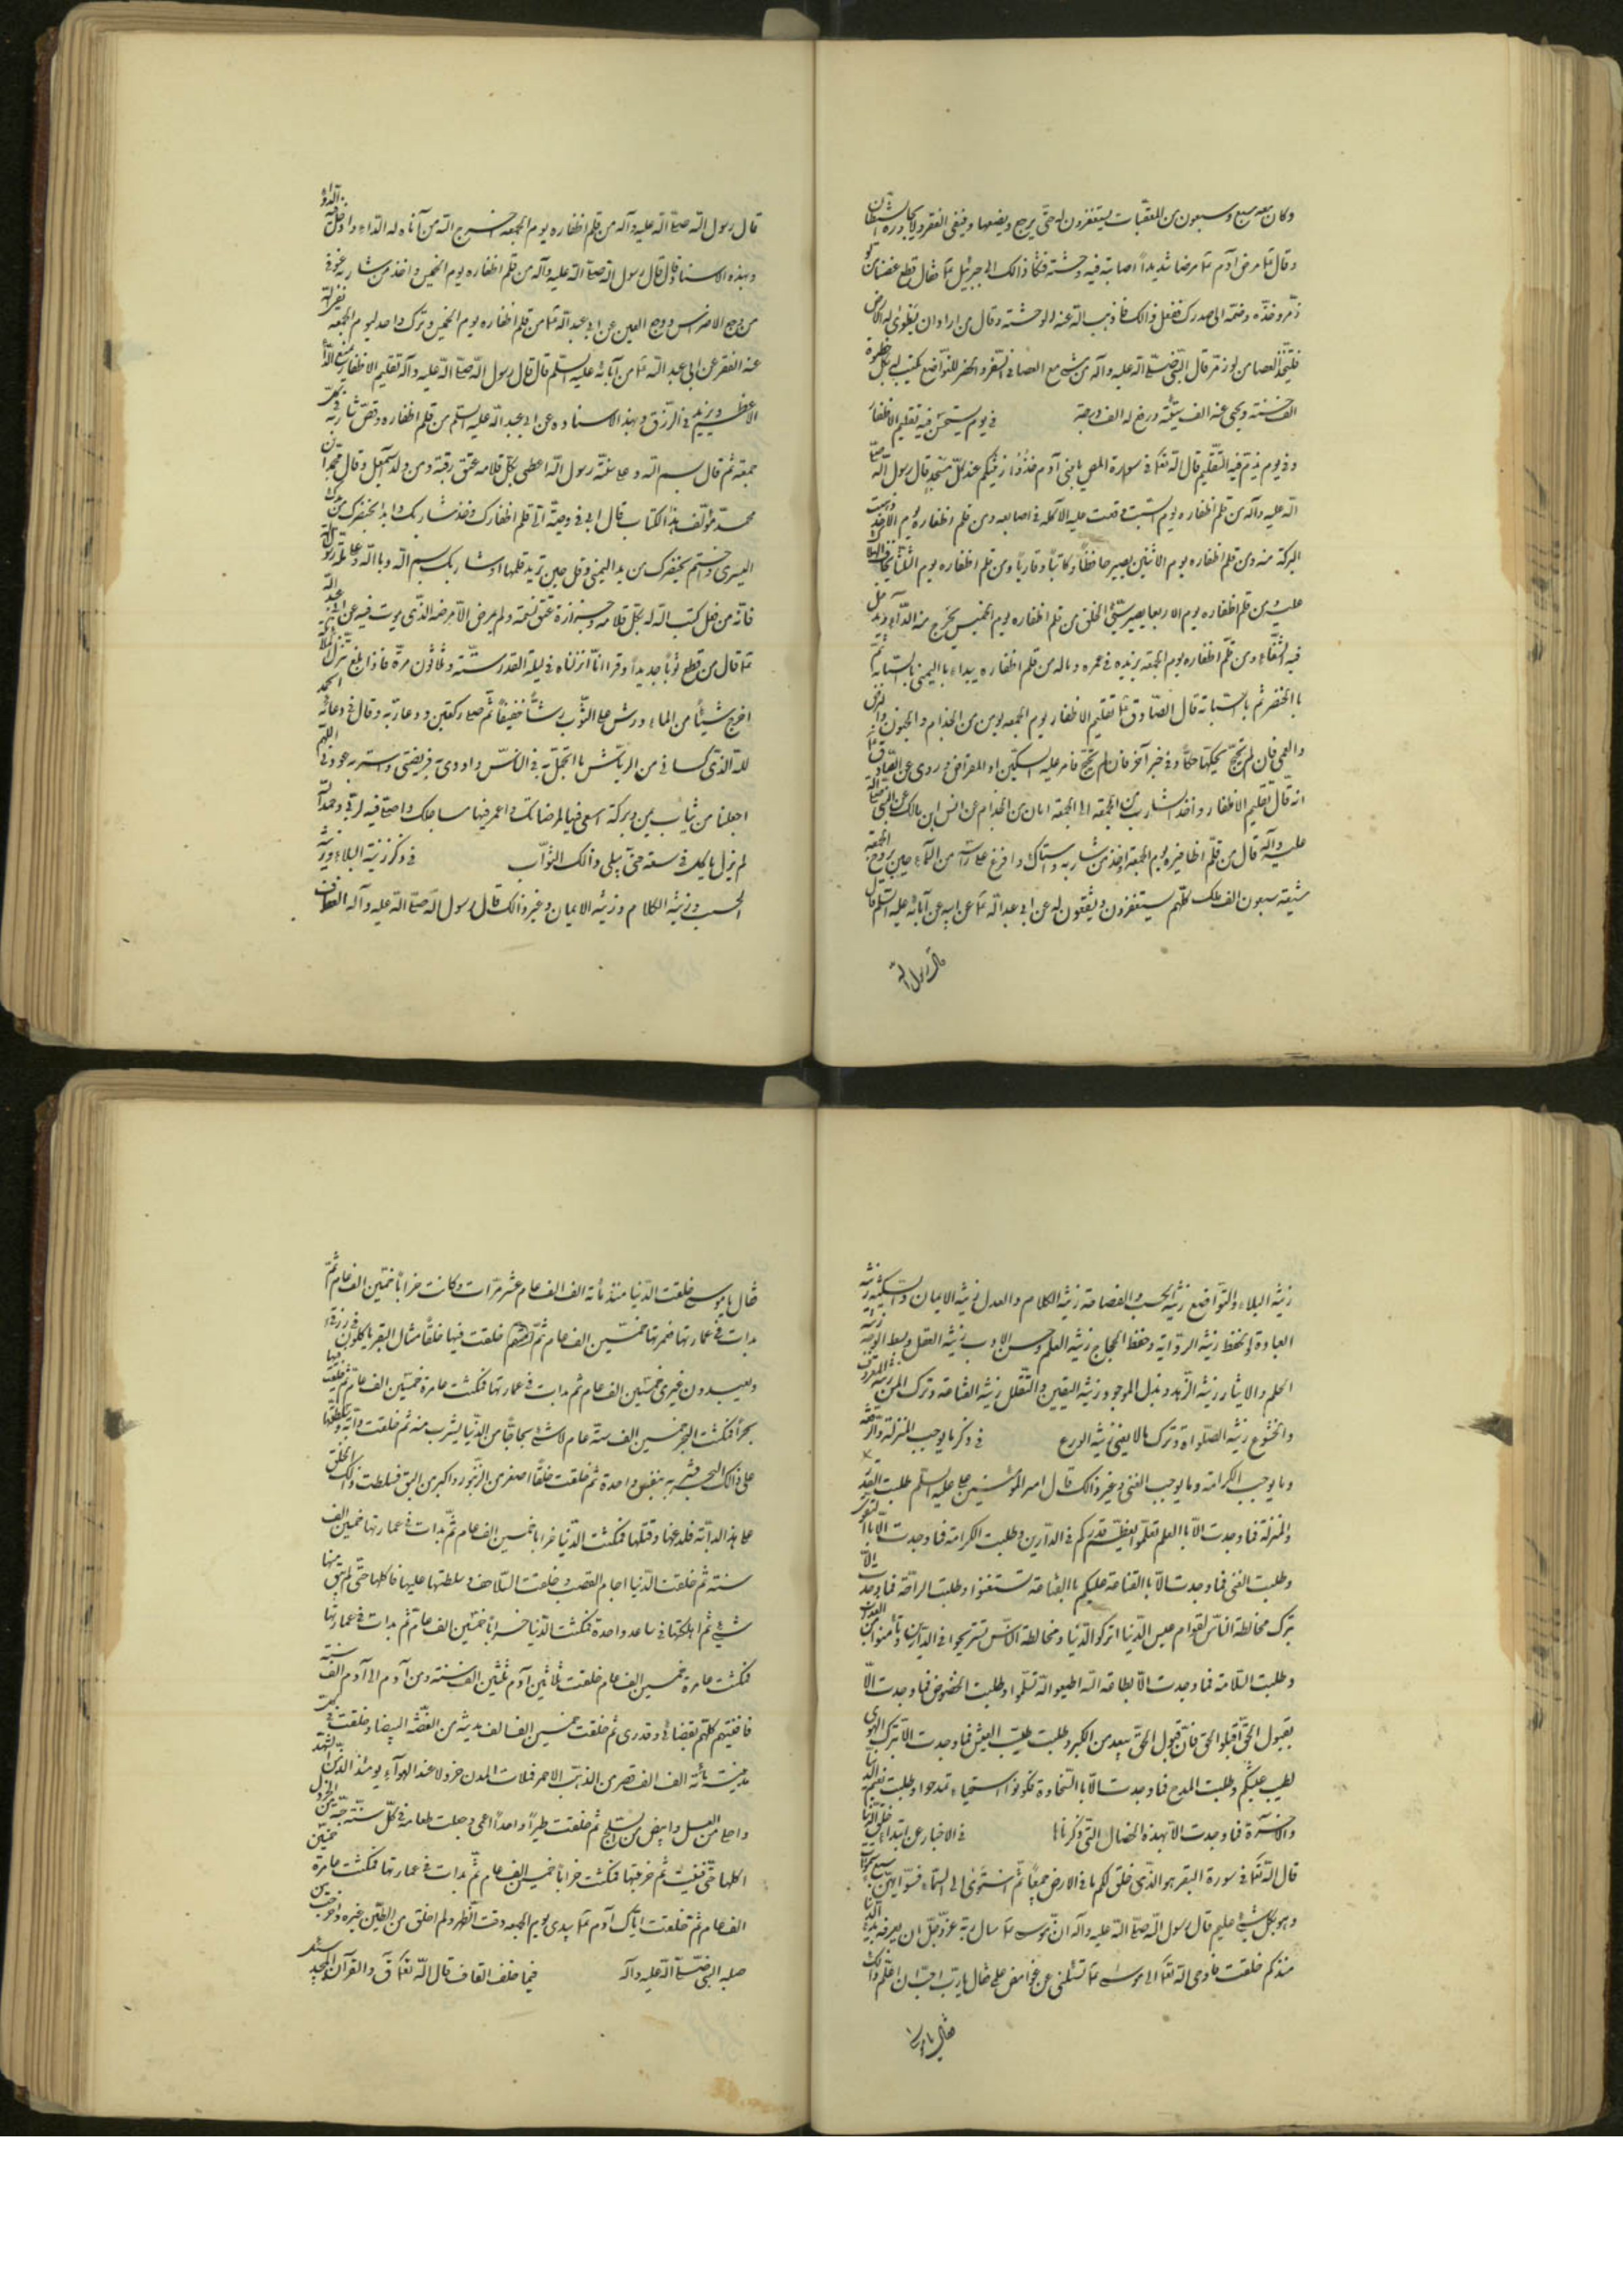 وكان معه سبع وسبعون من المعقبات يستغفرون له حتى يرجع ويضعها وينفى الفقر ولا يجاوره الشيطان
وقال مرض آدم مرضا شديدا اصابته فيه وحشة فشكا ذالك الى جبرئيل فقال قطع غصنا من لوز
مرّ وخذه وضمه الى صدرك ففعل ذالك فاذهب الله عنه الوحشة وقال من اراد ان يطوى له الارض
فليتخذ العصا من لوز مرّ قال النبى صلى الله عليه وآله من مشى مع العصا فى السفر والحضر للتواضع يكتب له بكل خطوة
الف حسنة ومحى عنه الف سيئة ورفع له الف درجة فى يوم يستحسن فيه تقليم الاظفار
وفى يوم يذم فيه التقليم قال الله تعا فى سورة المص يا بنى آدم خذوا زينتكم عند كل مسجد قال رسول الله صلى
الله عليه وآله من قلم اظفاره يوم السبت وقعت عليه الآكلة فى اصابعه ومن قلم اظفاره يوم الاحد ذهبت
البركة منه ومن قلم اظفاره يوم الاثنين يصير حافظا وكاتبا وقاريا ومن قلم اظفاره يوم الثلثا يخاف الهلاك
عليه ومن قلم اظفاره يوم الاربعا يصير سيئ الخلق من قلم اظفاره يوم الخميس يخرج منه الداء ويدخل
فيه الشفاء ومن قلم اظفاره يوم الجمعة يزيده فى عمره وماله من قلم اظفاره يبداء باليمنى بالسبابة ثم
بالخنصر ثم بالسبابة قال الصادق تقليم الاظفار يوم الجمعة يومن من الجذام والجنون والبرص
والعمى فان لم تحتج تحكها حكا وفى خبر آخر فان لم تحتج فامر عليه السكين او المقراض وروى عن الصادق
انه قال تقليم الاظفار واخذ الشارب من الجمعة الى الجمعة امان من الجذام عن انس ابن مالك عن النبى صلى الله
عليه وآله قال من قلم اظافيره يوم الجمعة واخذ من شاربه واستاك وافرغ على راسه من الماء حين يروح الجمعة
شيعته سبعون الف ملك كلهم يستغفرون ويشفعون له عن ابى عبد الله عن ابيه عن آبائه عليه السلم قال
قال رسول الله
قال رسول الله صلى الله عليه وآله من قلم اظفاره يوم الجمعة اخرج الله من انامله الداء وادخل فيه الدواء
وبهذه الاسناد قال قال رسول الله صلى الله عليه وآله من قلم اظفاره يوم الخميس واخذ من شاربه عوفى
من وجع الاضراس ووجع العين عن ابى عبد الله من قلم اظفاره يوم الخميس وترك واحد ليوم الجمعة نفى الله
عنه الفقر عن ابى عبد الله عن آبائه عليه السلم قال قال رسول الله صلى الله عليه وآله تقليم الاظفار يمنع الداء
الاعظم ويزيد فى الرزق وبهذ الاسناده عن ابى عبد الله عليه السلم من قلم اظفاره وقص شاربه فى كل
جمعة ثم قال بسم الله وعلى سنة رسول الله اعطى بكل قلامه عتق رقبة من ولد اسمعيل وقال
محمد مؤلف هذا الكتاب قال ابى فى وصيته الى قلم اظفارك وخذ شاربك وابدا بخنصرك من يدك
اليسرى واختم بخنصرك من يد اليمنى وقل حين تريد قلمها او شاربك بسم الله وبالله وعلى ملة رسول الله
فانه من فعل كتب الله له بكل قلامه وجزازة عتق نسمة ولم يمرض الا مرضه الذى يموت فيه عن ابى عبد الله
قال من قطع ثوبا جديدا وقرا انا انزلناه فى ليلة القدر ستة وثلاثون مرة فاذا بلغ تنزل الملئكة
اخرج شيئا من الماء ورش على الثوب رشا خفيفا ثم صلى ركعتين ودعا ربه وقال فى دعائه الحمد
لله الذى كسانى من الرياش ما اتجمل به فى الناس واودى به فريضتى واستر به عورتى اللهم
اجعلنا من ثياب يمن وبركة اسعى فيها لمرضاتك واعمر فيها مساجدك واصلى فيه لربى وحمد الله
لم يزل ياكل فى سعة حتى يبلى ذالك الثواب فى ذكر زينة البلاء وزينة
الحسب وزينة الكلام وزينة الايمان وغير ذالك قال رسول الله صلى الله عليه وآله العفاف
زينة البلاء والتواضع زينة الحسب والفصاحة زينة الكلام والعدل زينة الايمان والسكينة زينة
العبادة والحفظ زينة الرواية وحفظ الحجاج زينة العلم وحسن الادب زينة العقل وبسط الوجه زينة
الحلم والايثار زينة الزهد وبذل الموجود زينة اليقين والتقلل زينة القناعة وترك المن زينة المعروف
والخشوع زينة الصلواة وترك مالا يعنى زينة الورع فى ذكر ما يوجب المنزلة والراحة
وما يوجب الكرامة وما يوجب الغنى وغير ذالك قال امير المؤمنين على عليه السلم طلبت القدر
والمنزلة فما وجدت الا بالعلم تعلموا يعظم قدركم فى الدارين وطلبت الكرامة فما وجدت الا بالتقوى
وطلبت الغنى فما وجدت الا بالقناعة عليكم بالقناعة تستغنوا وطلبت الراحة فما وجدت الا
بترك مخالطة الناس لقوام عيش الدنيا اتركوا الدنيا ومخالطة الناس تستريحوا فى الدارين وتامنوا من العذاب
وطلبت السلامة فما وجدت الا بطاعة الله اطيعوا الله تسلموا وطلبت الخضوع فما وجدت الا
بقبول الحق اقبلوا الحق فان قبول الحق يبعد من الكبر وطلبت طيب العيش فما وجدت الا بترك الهوى
ليطيب عيشكم وطلبت المدح فما وجدت الا بالسخاوة كونوا اسخياء تمدحوا وطلبت نعيم الدنيا
والآخرة فما وجدت الا بهذه الخصال التى ذكرناها فى الاخبار عن ابتداء خلق الدنيا
قال الله تعا فى سورة البقر هو الذى خلق لكم ما فى الارض جميعا ثم استوى الى السماء فسويهن سبع سموات
وهو بكل شئ عليم قال رسول الله صلى الله عليه وآله ان موسى سال ربه عز وجل ان يعرفه بدء الدنيا
منذ كم خلقت فاوحى الله تعا الى موسى تسئلنى عن غوامض علمى فقال يا رب احب ان اعلم ذالك
فقال يا موسى
فقال يا موسى خلقت الدنيا منذ مائة الف الف عام عشر مرات وكانت خرابا خمسين الف عام ثم
بدات فى عمارتها فعمرتها خمسين الف عام ثم خلقت فيها خلقا مثال البقر ياكلون رزقى
ويعبدون غيرى خمسين الف عام ثم بدات فى عمارتها فمكثت عامرة خمسين الف عام ثم خلقت فيها
بحرا فمكثت البحر خمسين الف سنة عام لا شئ مجاجا من الدنيا يشرب منه ثم خلقت دابة وسلطتها
على ذالك البحر فشربه بنفس واحدة ثم خلقت خلقا اصغر من الزنبور واكبر من البق فسلطت ذالك الخلق
على هذا الدابة فلدغها وقتلها فمكثت الدنيا خرابا خمسين الف عام ثم بدات فى عمارتها خمسين الف
سنة ثم خلقت الدنيا اجام القصب وخلقت السلاحف وسلطتها عليها فاكلها حتى لم يبق منها
شئ ثم اهلكتها فى ساعة واحدة فمكثت الدنيا خرابا خمسين الف عام ثم بدات فى عمارتها
فمكثت عامرة خمسين الف عام خلقت ثلاثين آدم ثلثين الف سنة ومن آدم الى آدم الف سنة
فافنيتهم كلهم بقضائى وقدرى ثم خلقت خمسين الف الف مدينة من الفضة البيضا وخلقت فى كل
مدينة مائة الف الف قصر من الذهب الاحمر فملات المدن خردلا عند الهواء يومئذ الذ من الشهد
واحلى من العسل وابيض من الثلج ثم خلقت طيرا واحدا اعمى وجعلت طعامه فى كل سنة حبة من الخردل
اكلها حتى فنيت ثم خربتها فمكثت خرابا خمسين الف عام ثم بدات فى عمارتها فمكثت عامرة خمسين
الف عام ثم خلقت اباك آدم بيدى يوم الجمعة وقت الظهر ولم اخلق من الطين غيره واخرجت من
صلبه النبى صلى الله عليه وآله فيما خلف القاف قال الله تعا ق والقرآن المجيد